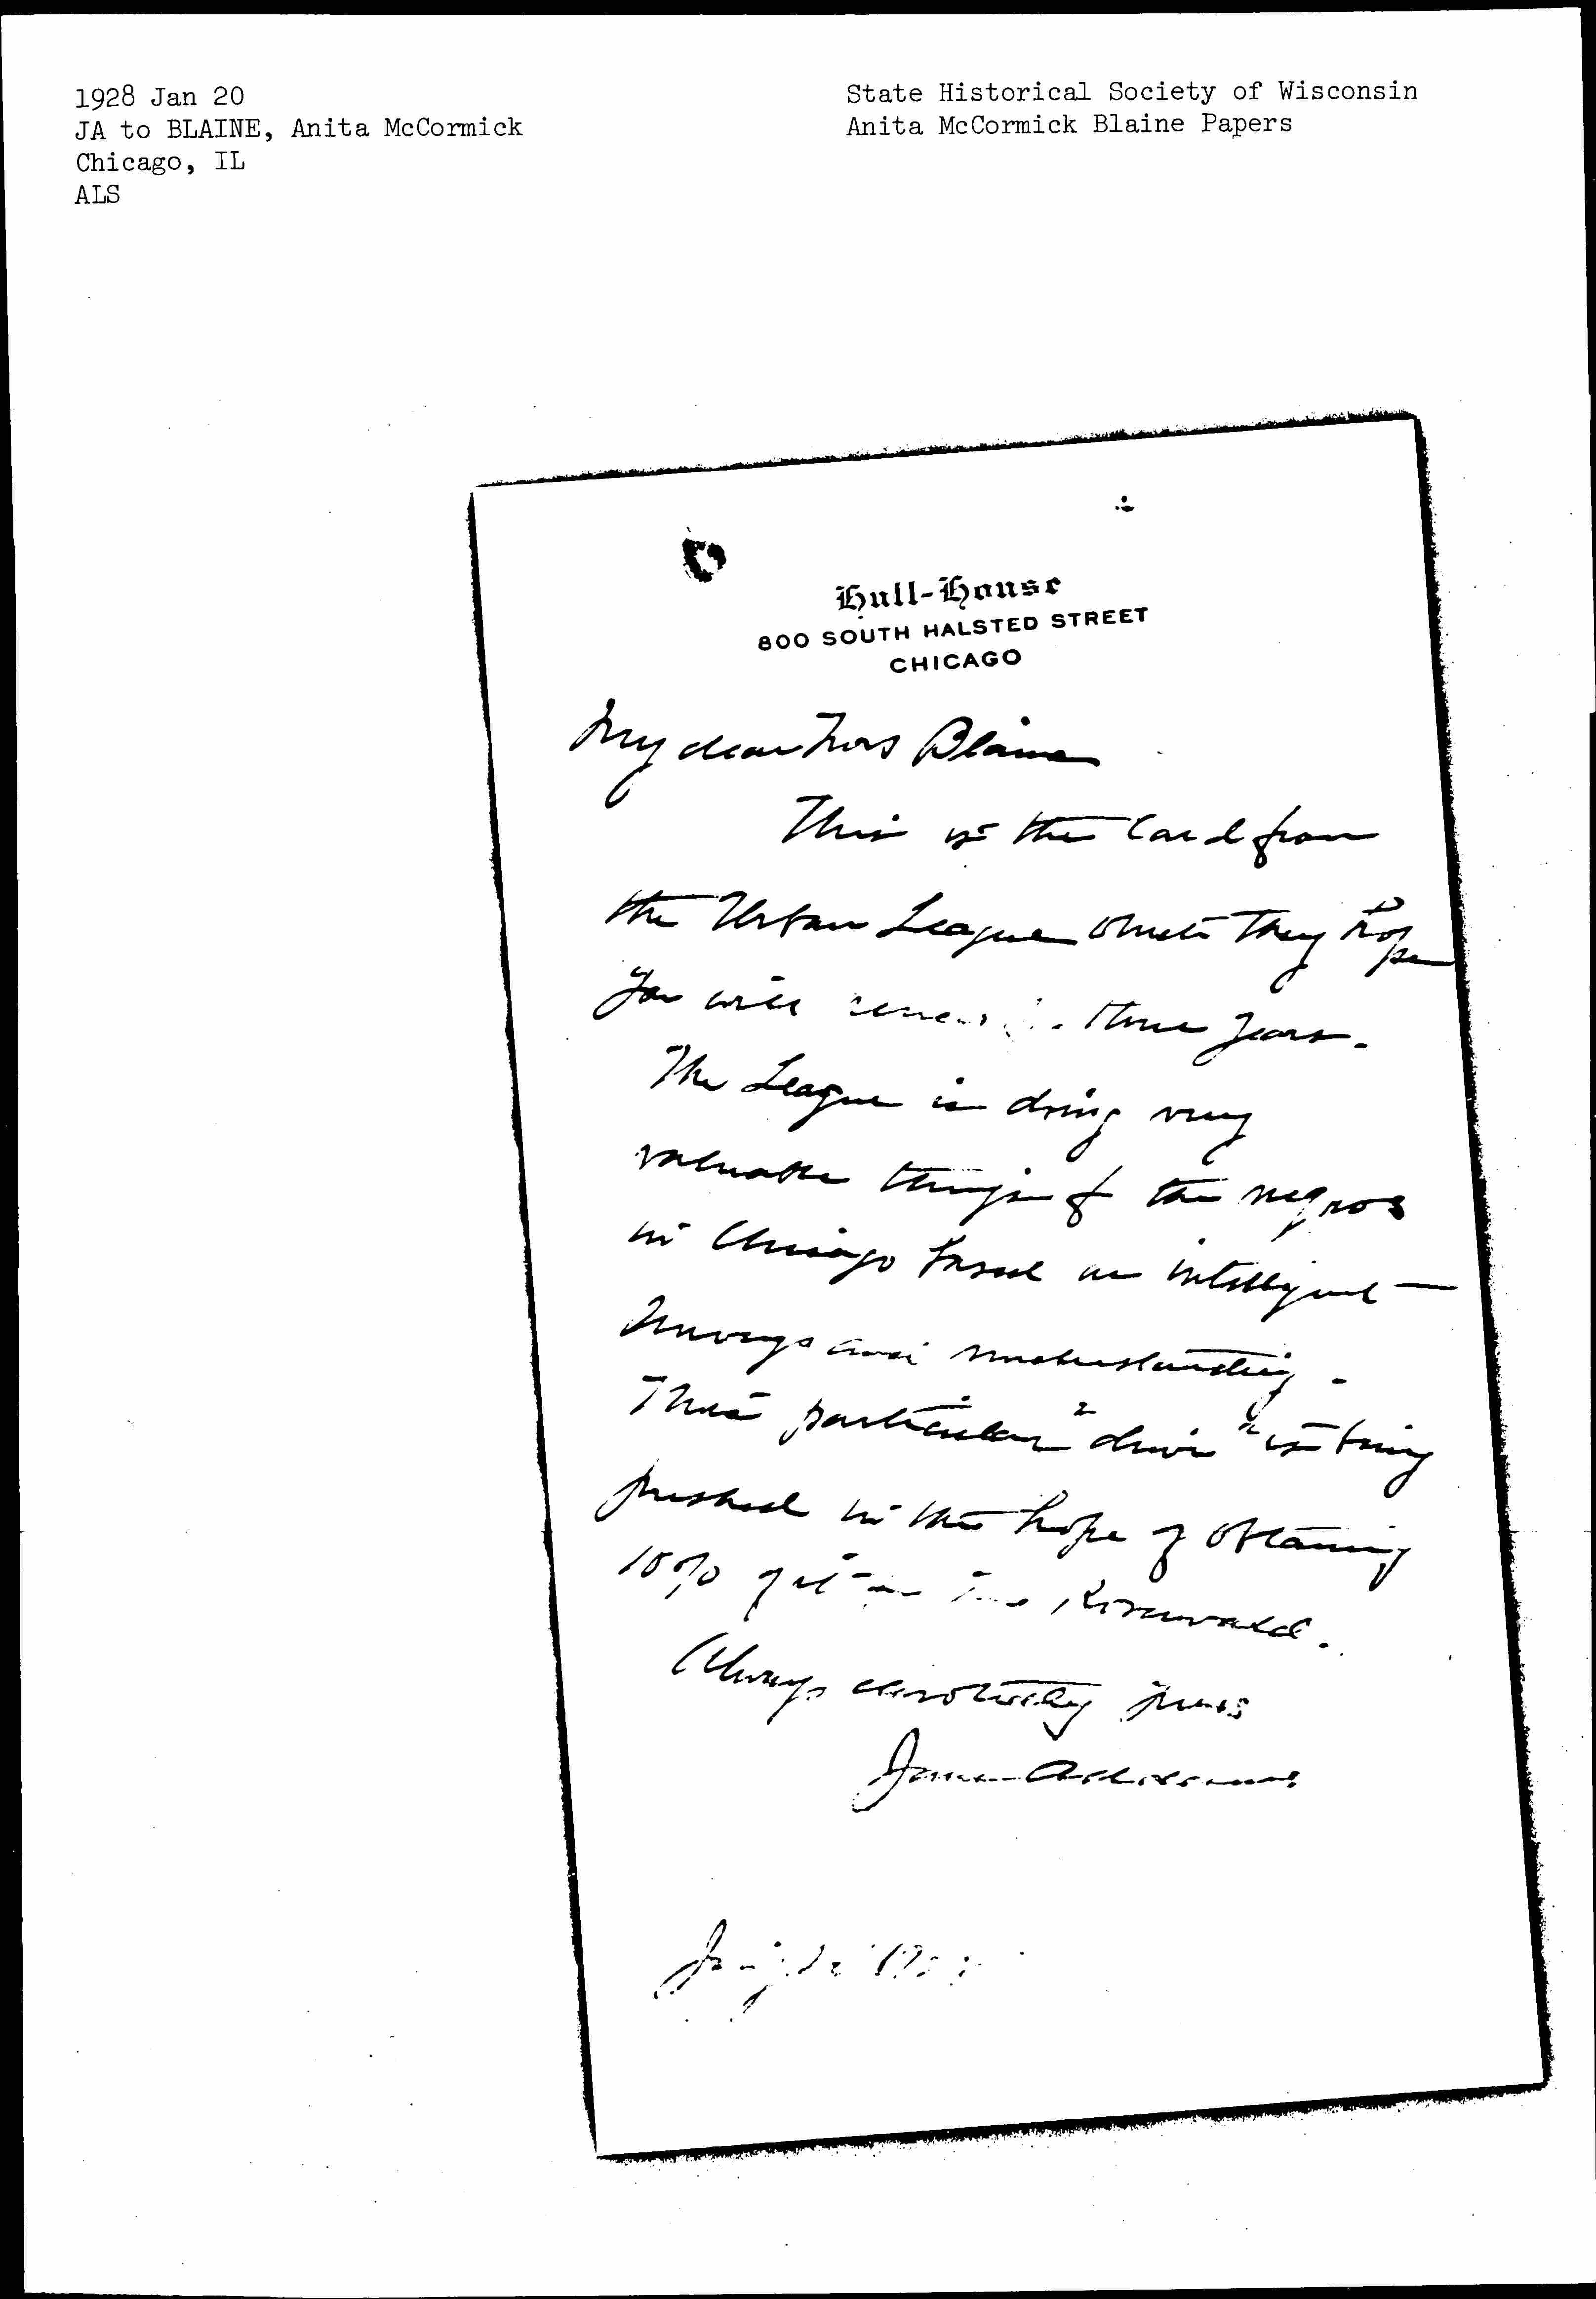 1928 Jan 20
JA to BLAINE, Anita McCormick
Chicago, IL
ALS
State Historical Society of Wisconsin
Anita McCormick Blaine Papers
Hull-House
800 SOUTH HALSTED STREET
CHICAGO
My dear Mrs Blaine
This is the card from
the Urban League which they hope
you will renew three years.
The League is doing very
valuable things for the negros
in Chicago based on intelligent
surveys and understanding.
This particular "drive" is being
pushed in the hope of obtaining
10% of it Rosenwald.
Always devotedly yours
Jane Addams